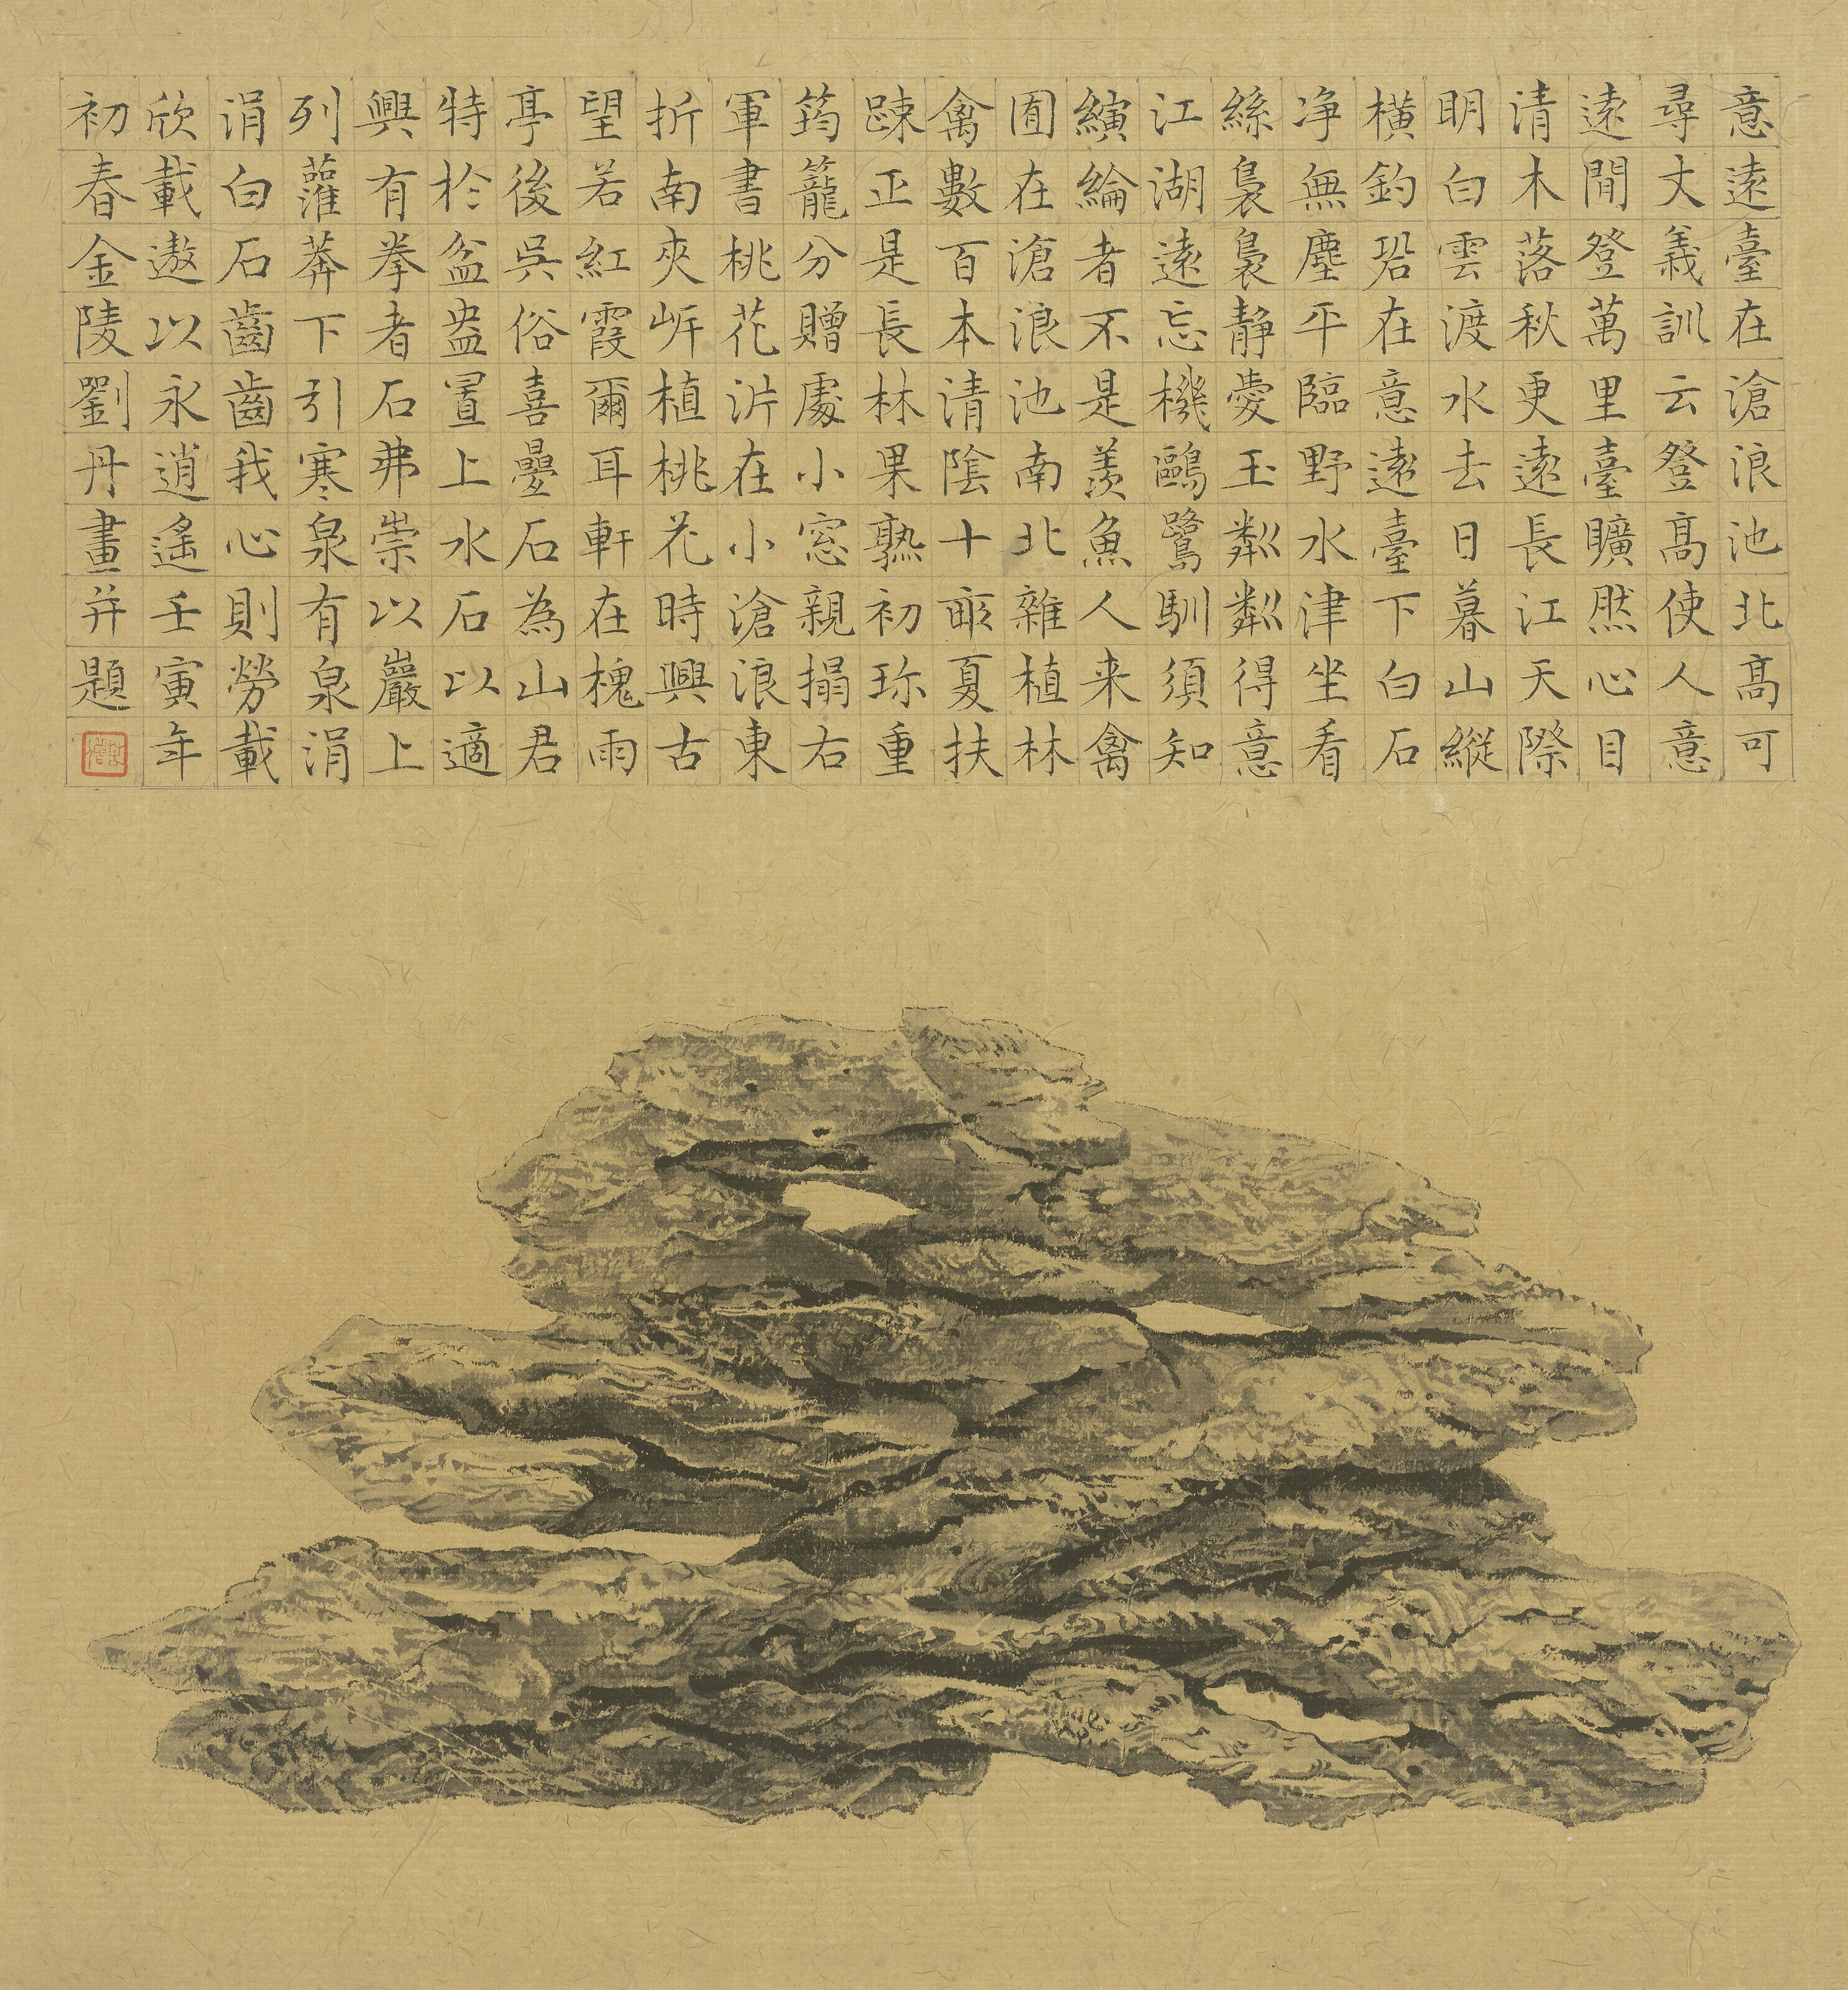 意遠臺在滄浪池北高可
尋丈義訓云登高使人意
遠閒登萬里臺曠然心目
清木落秋更遠長江天際
明白雲渡水去日暮山縱
橫釣䂬在意遠臺下白石
净無塵平臨野水津坐看
絲裊裊静愛玉粼粼得意
江湖遠忘機鷗鷺馴須知
繽綸者不是羨魚人来禽
囿在滄浪池南北雜植林
禽數百本清陰十畝夏扶
踈正是長林果熟初珎重
筠籠分贈處小窓親搨右
軍書桃花沜在小滄浪東
折南夾岍植桃花時興古
望若紅霞爾耳軒在槐雨
亭後吳俗喜疊石為山君
特於盆盎置上水石以適
興有拳者石弗崇以巖上
列灌莽下引寒泉有泉涓
涓白石齒齒我心則勞載
欣載遨以永逍遙壬寅年
初春金陵劉丹畫并題